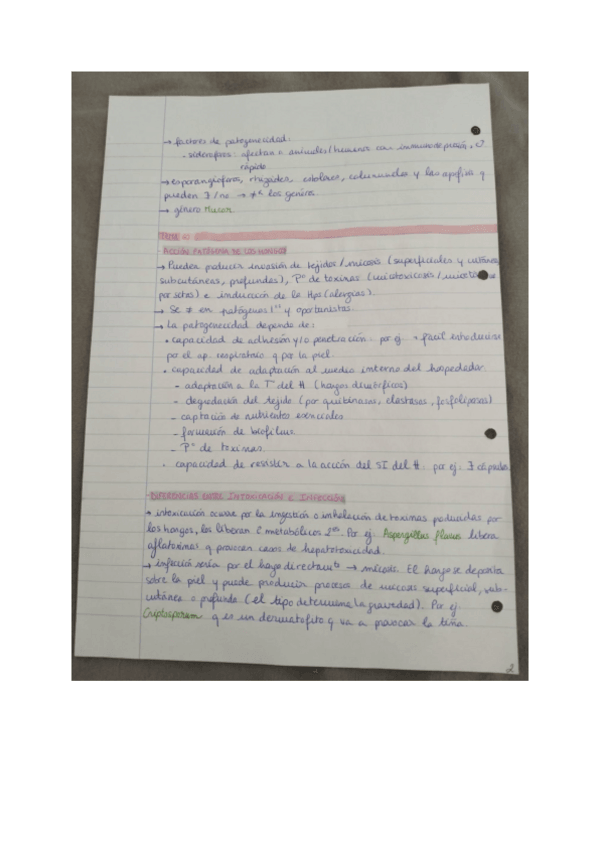 → factores de patogenicidad:
- sideroforos: afectan a animales/humanos con inmunodepresión,
rápido
→ esporangióforos, rhizoides, estolones, columnelas y las apófisis q
pueden ∃/no → ≠ los géneros.
→ género Mucor
TEMA
ACCIÓN PATÓGENA DE LOS HONGOS
→ Pueden producir invasión de tejidos/micosis (superficiales y cutáneas,
subcutáneas, profundas), P° de toxinas (micotoxicosis/
por setas) e inducción de la Hps (alergias).
→ Se ≠ en patógenos 1os y oportunistas.
→ La patogenicidad depende de:
• capacidad de adhesión y/o penetración: por ej: + fácil introducirse
por el ap. respiratorio q por la piel.
• capacidad de adaptación al medio interno del hospedador.
- adaptación a la T del H (hongos dimórficos)
- degradación del tejido (por queratinasas, elastasas, fosfolipasas)
- captación de nutrientes esenciales
- formación de biofilms
- P° de toxinas.
• capacidad de resistir a la acción del SI del H: por ej: ∃ cápsula
DIFERENCIAS ENTRE INTOXICACIÓN E INFECCIÓN
→ intoxicación ocurre por la ingestión o inhalación de toxinas producidas por
los hongos, los liberan metabólicos 2os. Por ej: Aspergillus flavus libera
aflatoxinas q provocan casos de hepatotoxicidad.
→ infección sería por el hongo directamente → micosis. El hongo se deposita
sobre la piel y puede producir procesos de micosis superficial, sub-
cutánea o profunda (el tipo determina la gravedad). Por ej:
Criptosporum q es un dermatofito q va a provocar la tiña.
2